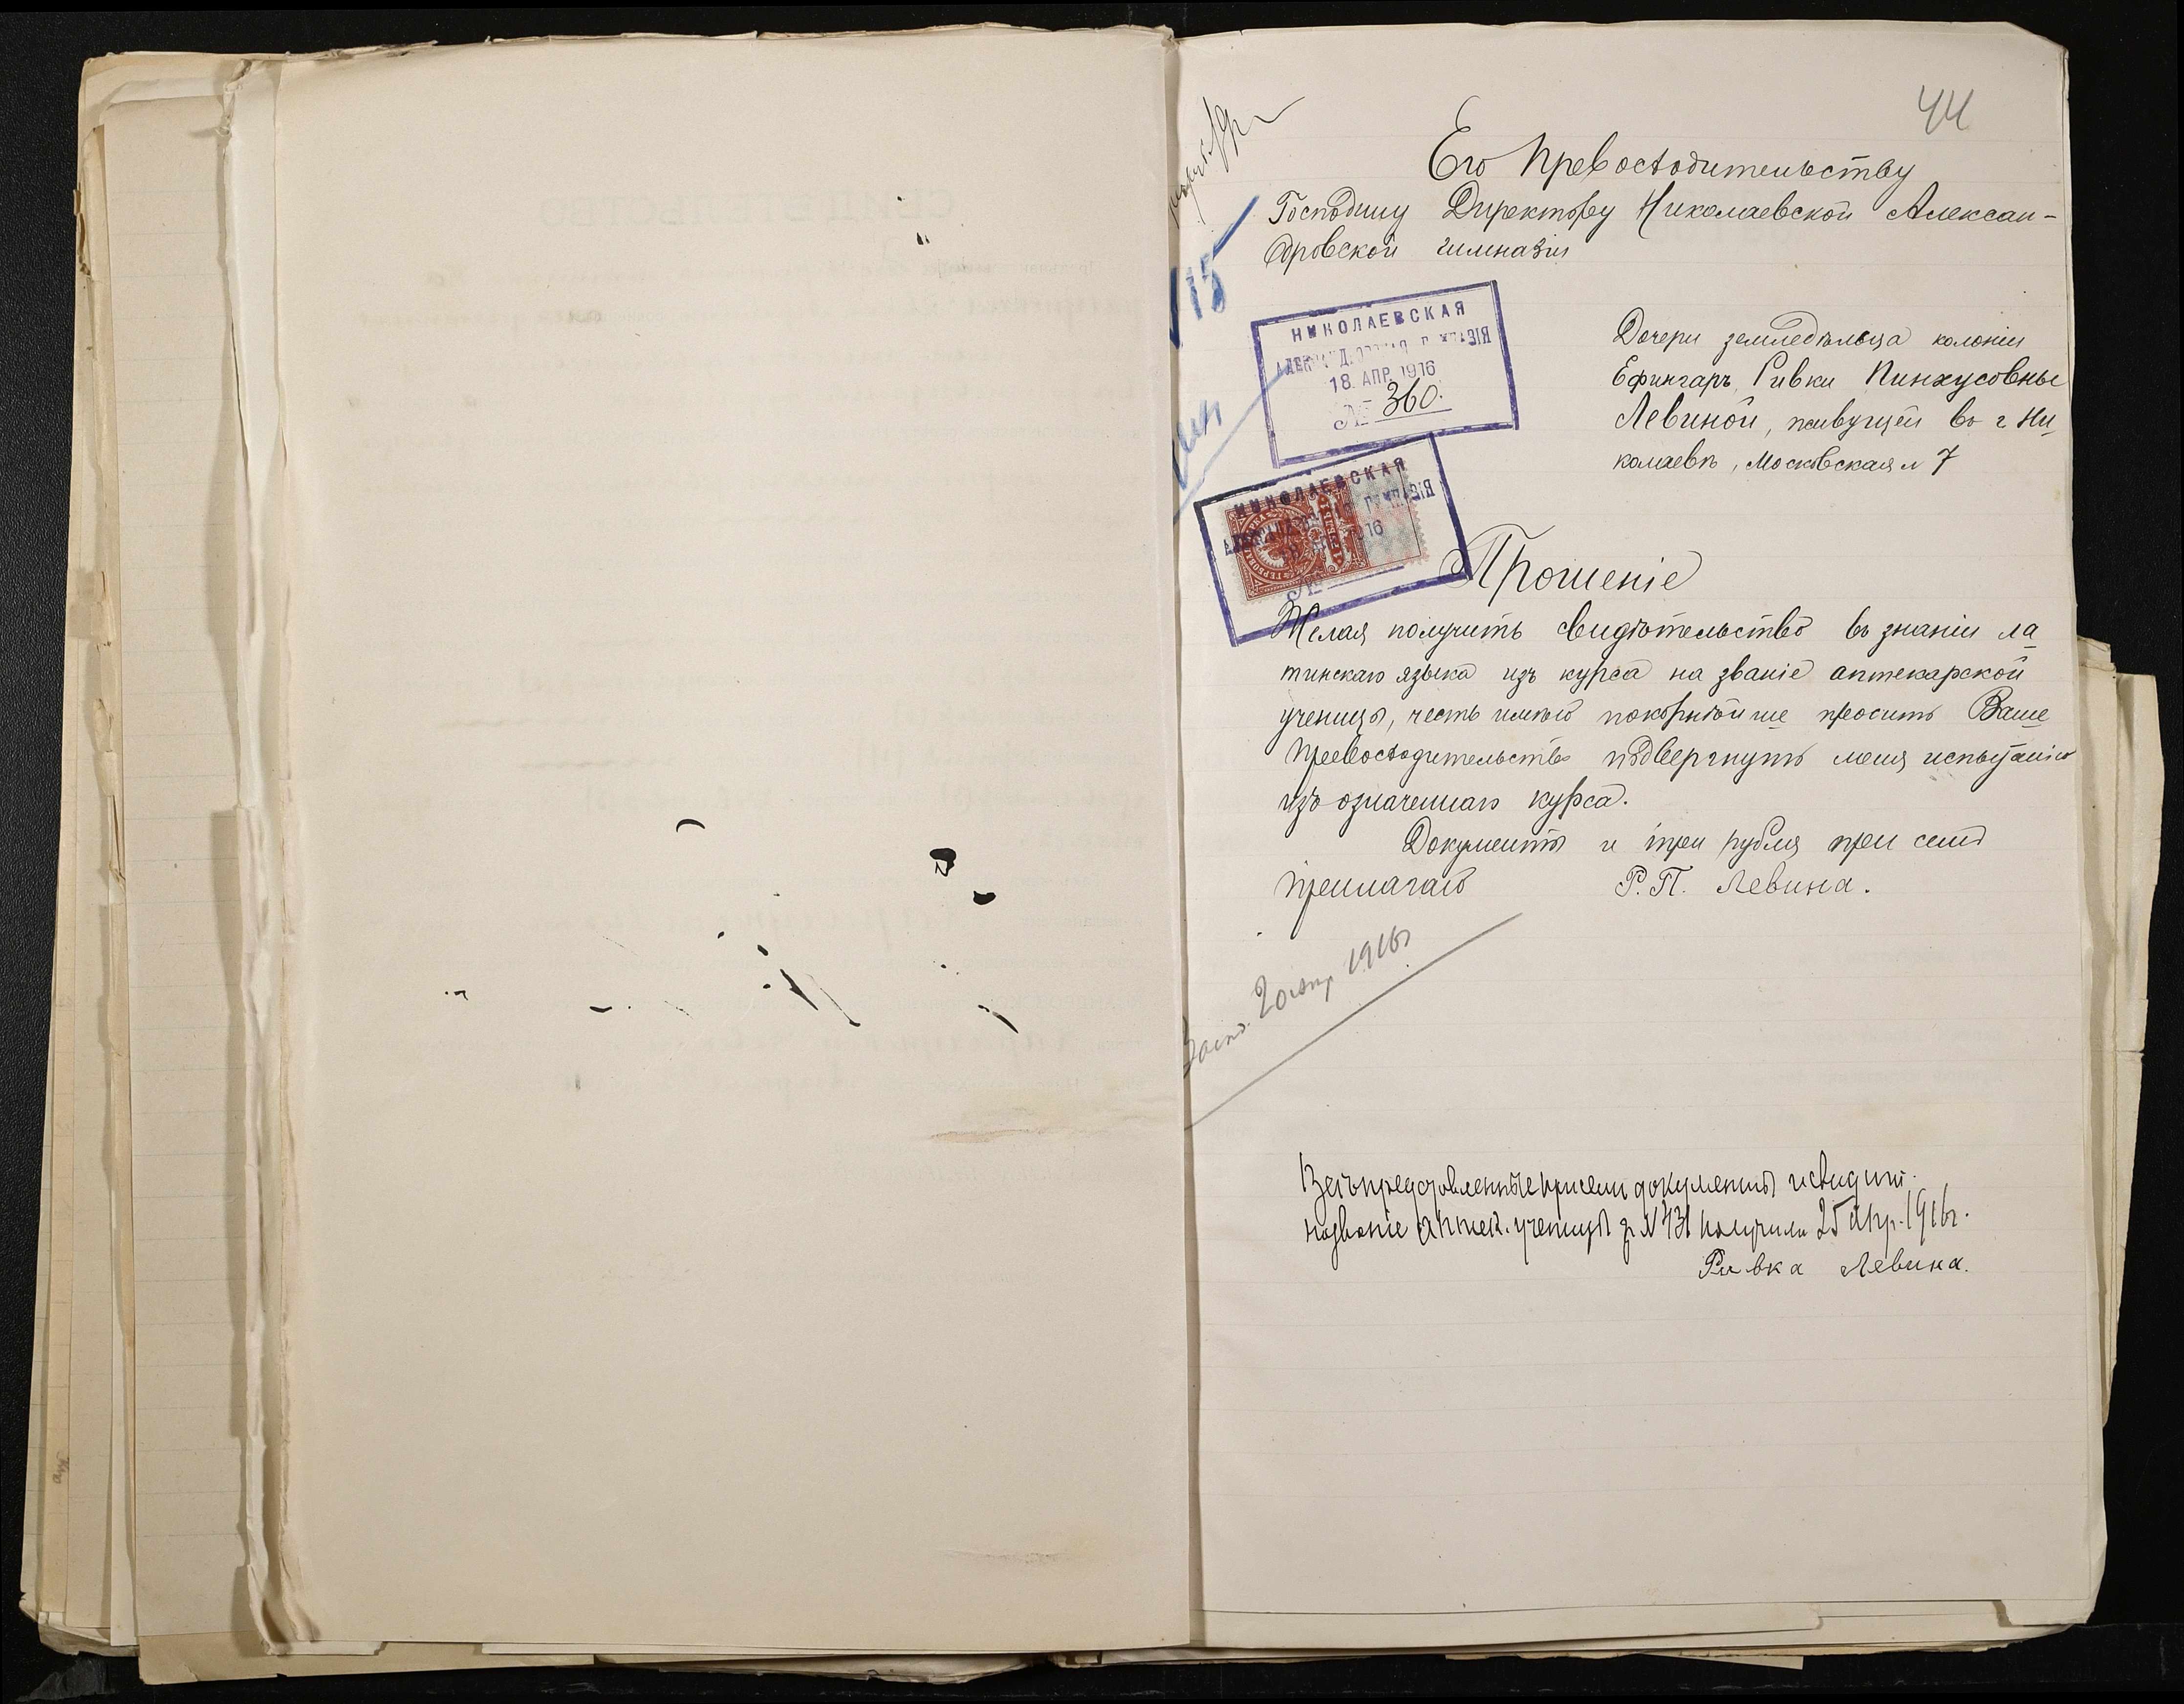 44
Его Превосходительству
Господину Директору Николаевской Алексан-
дровской гимназіи
15
НИКОЛАЕВСКАЯ
АЛЕКСАНДРОВСКАЯ ГИМНАЗІЯ
18. АПР. 1916
№ 360.
Дочери земледѣльца колоніи
Ефингаръ, Ривки Пинхусовны
Левиной, живущей въ г Ни
колаевѣ, Московская № 7
НИКОЛАЕВСКАЯ
АЛЕКСАНДРОВСКАЯ ГИМНАЗІЯ
№
Прошеніе
Желая получить свидѣтельство въ знаніи ла
тинскаго языка изъ курса на званіе аптекарской
ученицы, честь имѣю покорнѣйше просить Ваше
Превосходительство подвергнуть меня испытанію
изъ означеннаго курса.
Документы и три рубля при семъ
прилагаю Р. П. Левина.
20 апр 1916г
Всѣ представленные при семъ документы и свидѣт.
на званіе аптек. ученицы за № 431 получила 25 апр. 1916г.
Ривка Левина.